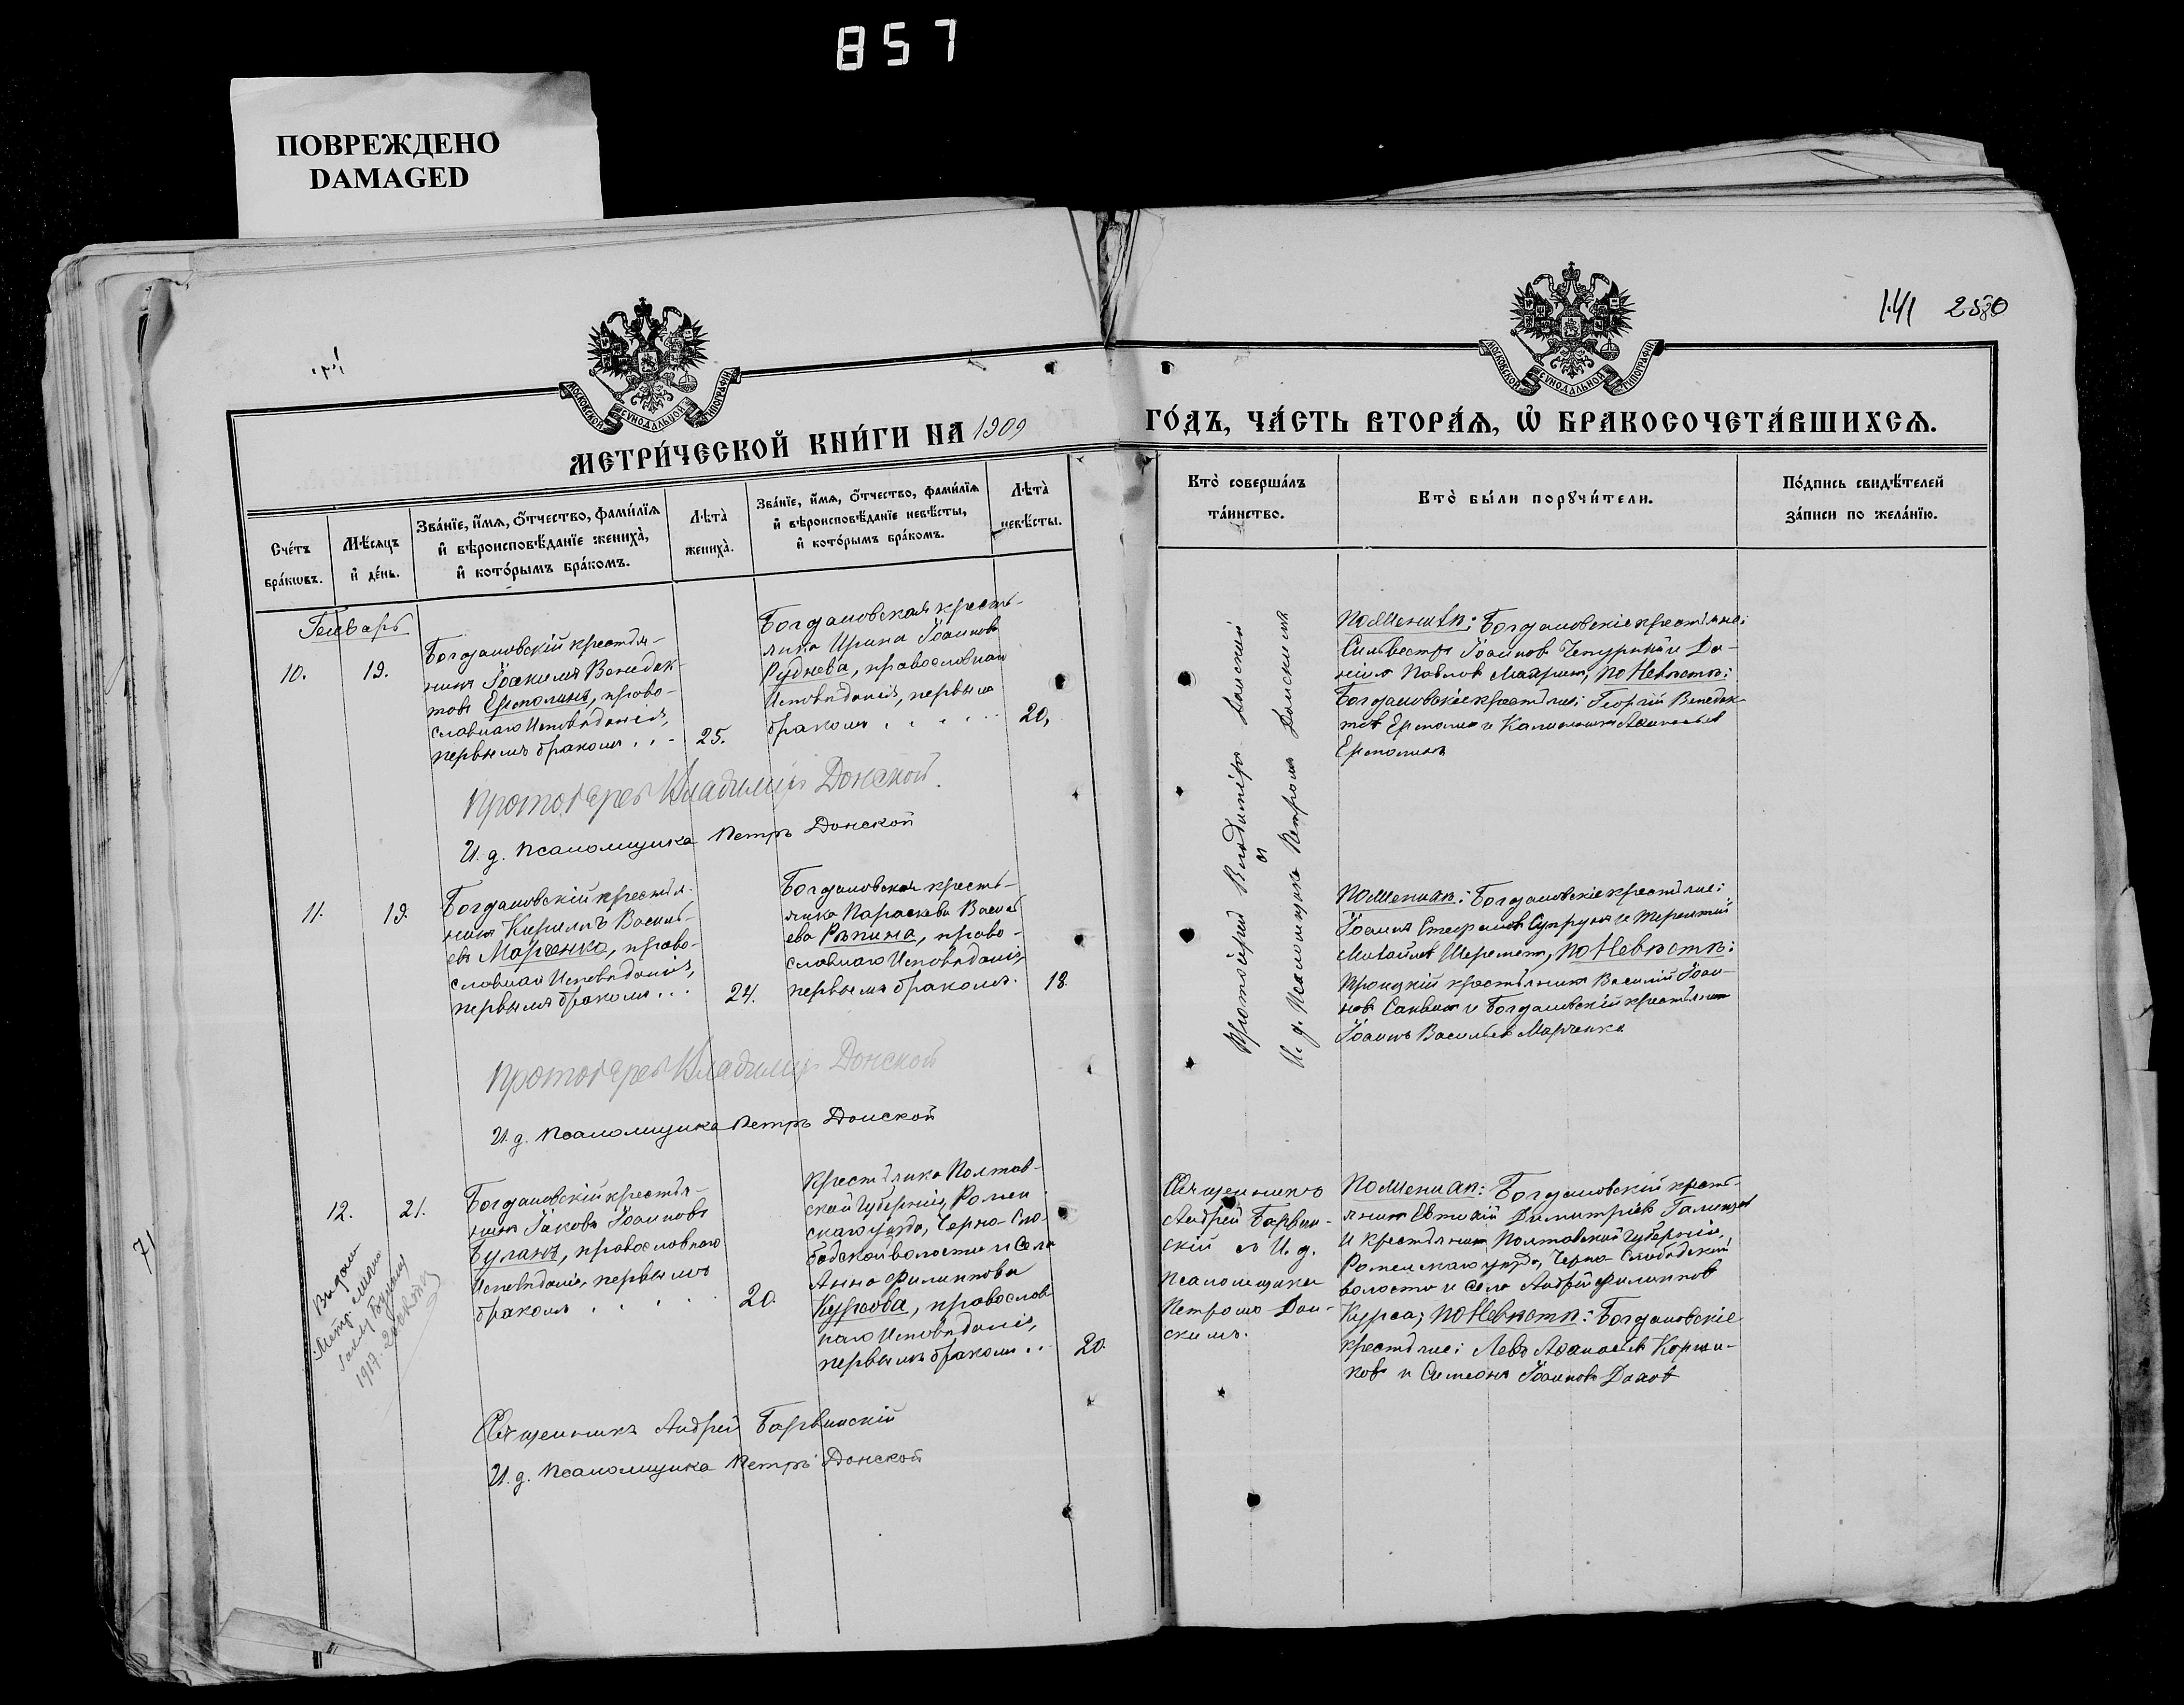 857
ПОВРЕЖДЕНО
DAMAGED
141 2580
МОСКОВСКОЙ СѴНОДАЛЬНОЙ ТИПОГРАФІИ
МОСКОВСКОЙ СѴНОДАЛЬНОЙ ТИПОГРАФІИ
МЕТРИ́ЧЕСКОЙ КНИ́ГИ НА 1909
ГО́ДЪ, ЧА́СТЬ ВТОРА́Ѧ, Ѡ҆ БРАКОСОЧЕТА́ВШИХСѦ.
Сче́тъ
бра́кѡвъ.
Мѣ́сѧцъ
и҆ де́нь.
Зва́нїе, и҆́мѧ, ѻ҆́тчество, фами́лїѧ
и҆ вѣроисповѣ́данїе жениха̀,
и҆ кото́рымъ бра́комъ.
Лѣта̀
жениха̀.
Зва́нїе, и҆́мѧ, ѻ҆́тчество, фами́лїѧ
и҆ вѣроисповѣ́данїе невѣ́сты,
и҆ кото́рымъ бра́комъ.
Лѣта̀
невѣ́сты.
Кто̀ соверша́лъ
та́инство.
Кто̀ бы́ли порꙋчи́тели.
По́дпись свидѣ́телей
за́писи по жела́нїю.
Генварь
10.
19.
Богдановскій крестья-
нинъ Іоакимъ Венедик-
товъ Ермолинъ, право-
славнаго Исповѣданія,
первымъ бракомъ . . -
25.
Богдановская кресть-
янка Ирина Іоаннова
Руднева, православнаго
Исповѣданія, первымъ
бракомъ . . . . .
20,
Протоіерей Владиміръ Донской
и
И. д. Псаломщика Петромъ Донскимъ
По Женихѣ: Богдановскіе крестьяне:
Сильвестръ Іоанновъ Чепурный и Да-
ніилъ Павловъ; по Невѣстѣ:
Богдановскіе крестьяне: Георгій Венедик-
товъ Ермолинъ и Аѳанасьевъ
Ермолинъ
Протоіерей Владиміръ Донской.
И. д. Псаломщика Петръ Донской
11.
19.
Богдановскій крестья-
нинъ Кириллъ Василь-
евъ Марченко, право-
славнаго Исповѣданія,
первымъ бракомъ . . .
24.
Богдановская кресть-
янка Параскева Василь-
ева Рѣпина, право-
славнаго Исповѣданія,
первымъ бракомъ.
18.
По Женихѣ: Богдановскіе крестьяне:
Іоаннъ Стефановъ Супрунъ и Терентій
Михайловъ Шереметъ, по Невѣстѣ:
Троицкій крестьянинъ Василій Іоан-
новъ и Богдановскій крестьянинъ
Іоаннъ Васильевъ Марченко
Протоіерей Владиміръ Донской
И. д. Псаломщика Петръ Донской
12.
21.
Богдановскій крестья-
нинъ Іаковъ Іоанновъ
Буланъ, православнаго
Исповѣданія, первымъ
бракомъ . . . .
20.
Крестьянка Полтав-
ской Губерніи, Ромен
скаго уѣзда, Черно-Сло-
бодской волости и села
Анна Филиппова
Курсова, православ-
наго Исповѣданія,
первымъ бракомъ . .
20.
Священникъ
Андрей Барвин-
скій съ И. д.
Псаломщика
Петромъ Дон-
скимъ.
По Женихѣ: Богдановскій кресть-
янинъ Евтихій Димитріевъ
и крестьянинъ Полтавской Губерніи,
Роменскаго уѣзда, Черно Слободской
волости и села Андрей Филипповъ
Курса; по Невѣстѣ: Богдановскіе
крестьяне: Левъ Аѳанасьевъ Корши-
ковъ и Симеонъ Іоанновъ
Выдана
Метр.
1917.
Священникъ Андрей Барвинскій
И. д. Псаломщика Петръ Донской
71